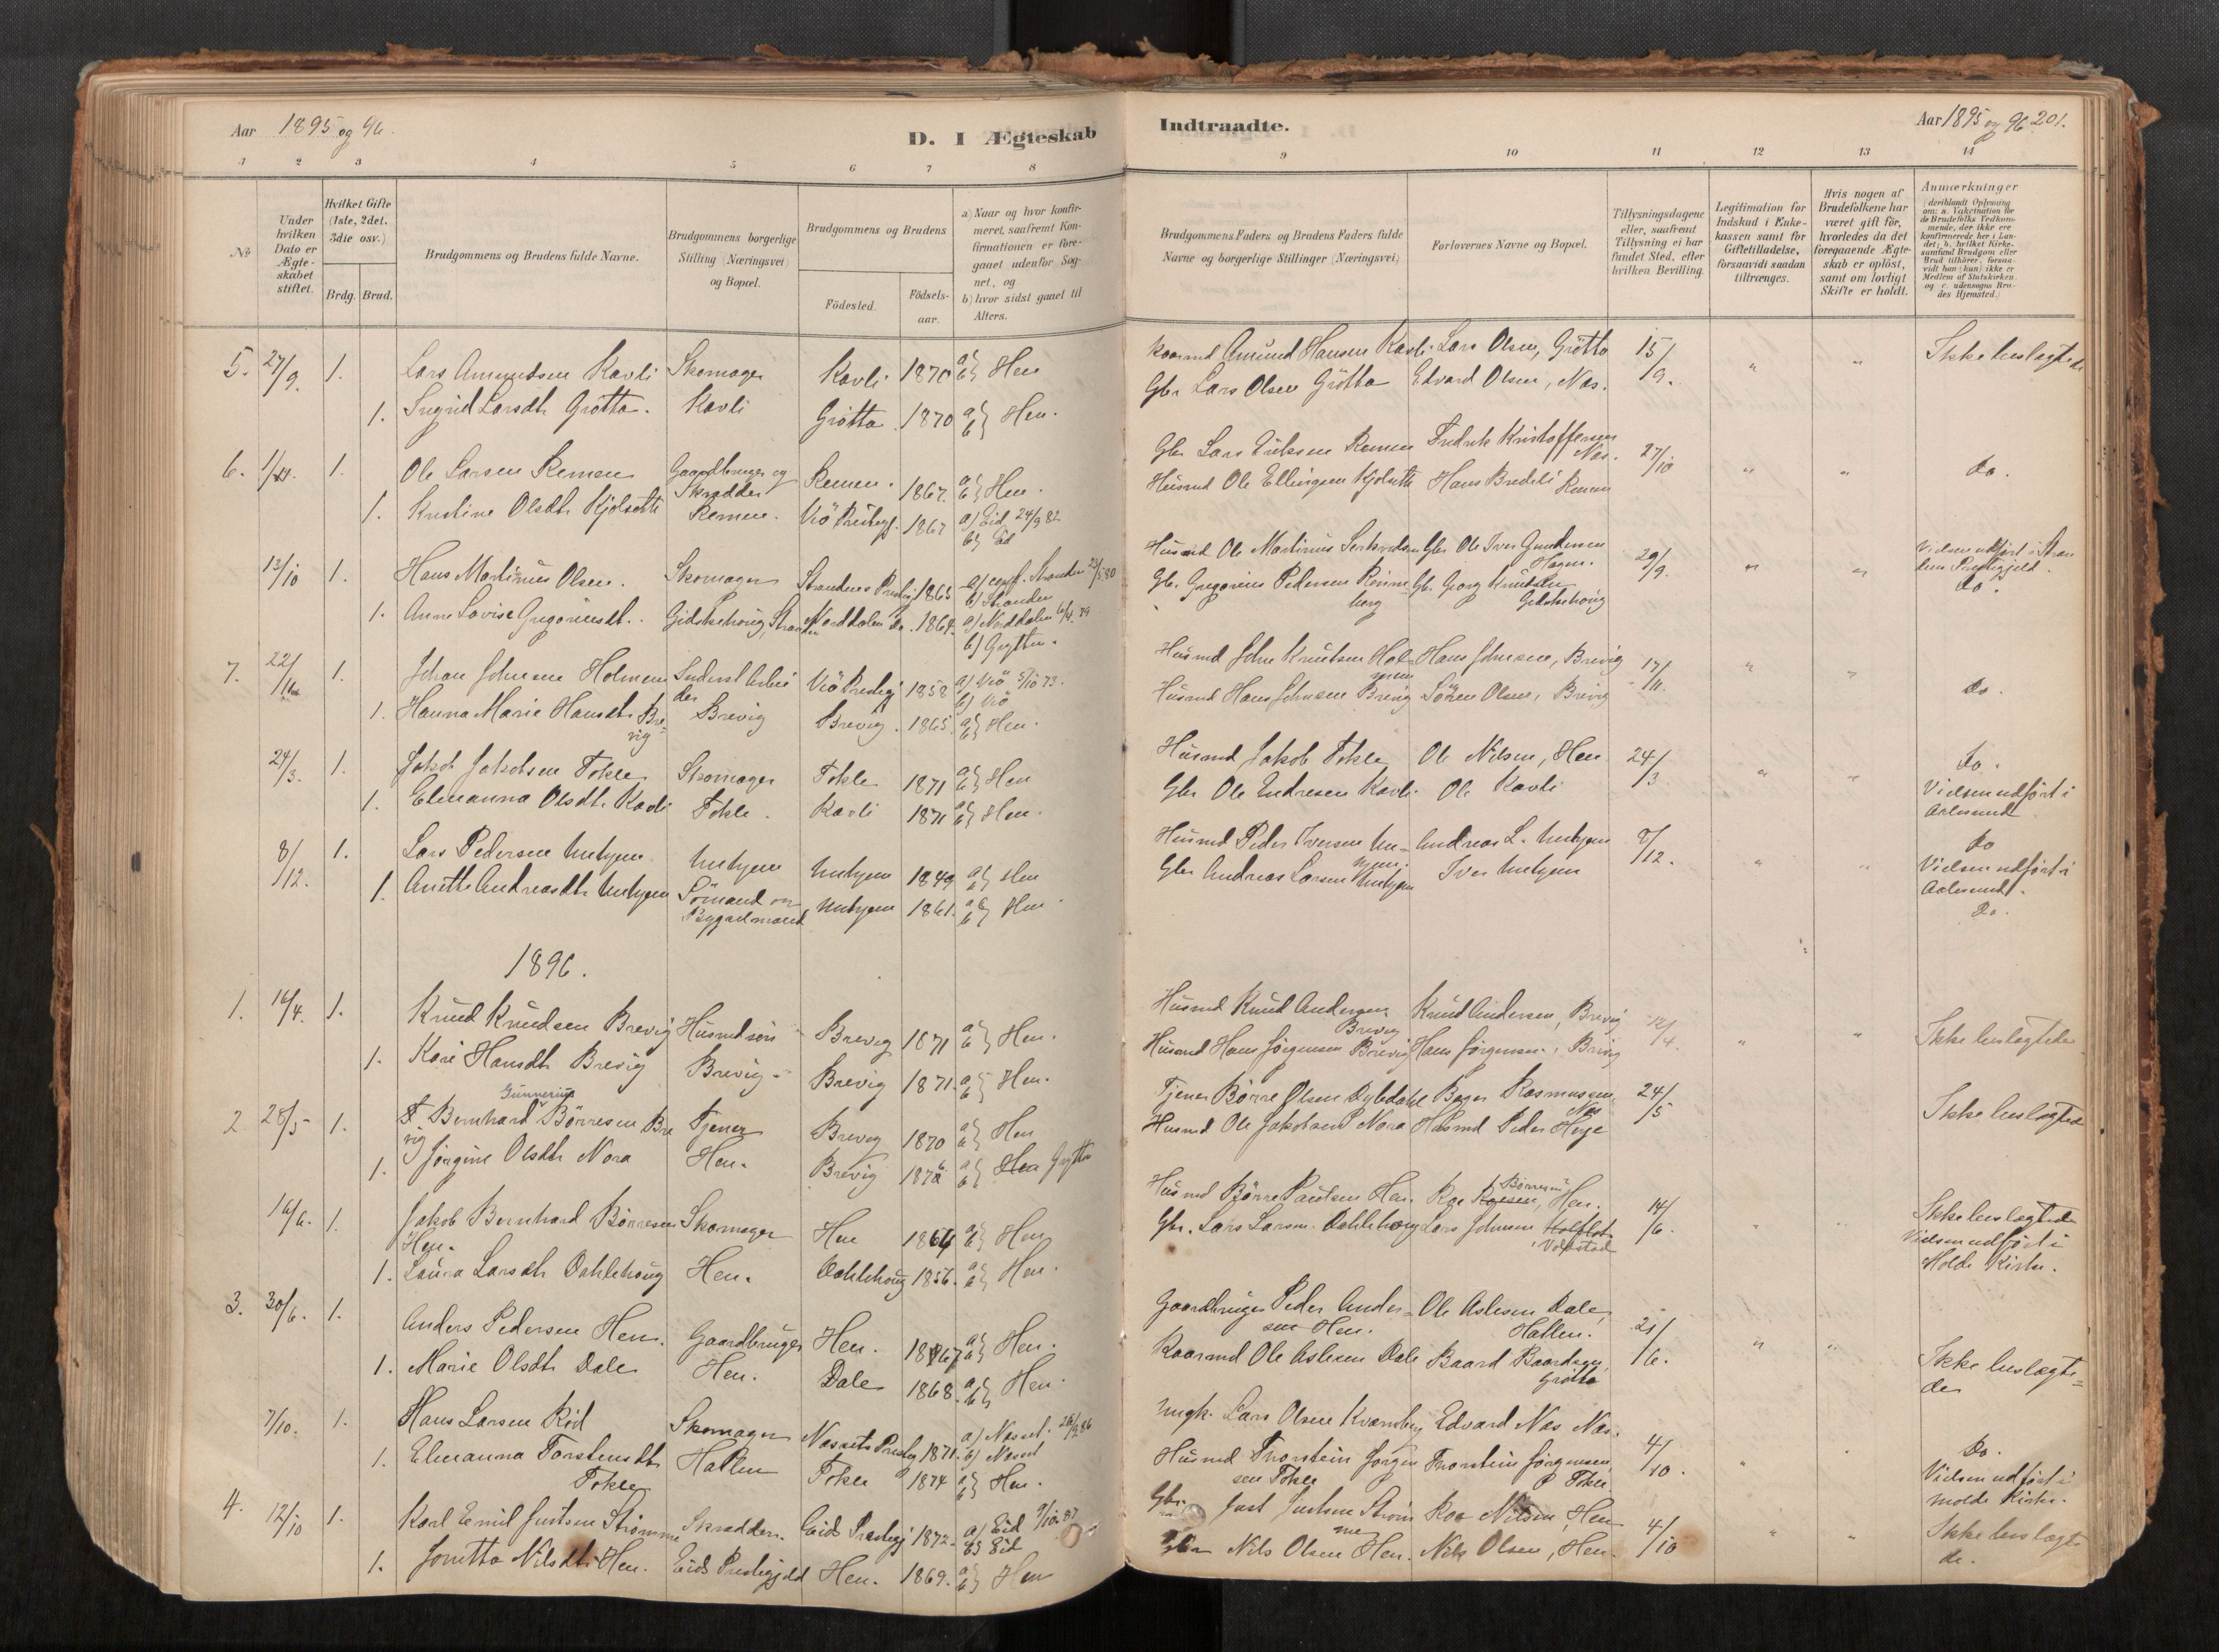 Aar 1895 og 96.
D. I Ægteskab
1 2 3 4 5 6 7 8
№
Under hvilken Dato er Ægteskabet stiftet.
Hvilket Gifte (1ste, 2det, 3die osv.)
Brdg. Brud.
Brudgommens og Brudens fulde Navne.
Brudgommens borgerlige Stilling (Næringsvei) og Bopæl.
Brudgommens og Brudens
Födested.
Födsels-aar.
a) Naar og hvor konfirmeret, saafremt Konfirmationen er foregaaet udenfor Sognet, og
b) hvor sidst gaaet til Alters.
5. 27/9. 1. Lars Amundsen Kavli Skomager Kavli 1870 a b} Hen
1. Ingrid Larsdtr Grötta. Kavli Grötta 1870 a b} Hen.
6. 1. Ole Larsen Remen Gaardbruger og Skrædder Remen. 1867. a b} Hen.
1. Kristine Olsdtr Kjölsette Remen. Vrö Prestegj. 1867 a) Eid 24/9 82 b) Eid
13/10 1. Hans Martinus Olsen. Skomager Strandens Prestegj 1865 a) conf. Stranden 23/5 80 b) Stranden
1. Anne Lovise Gregoriusdt. Gidskehoug, Stranden Norddalen do. 1864. a) Norddalen 6/4. 79 b) Grytten.
7. 22/11 1. Johan Johnsen Holmen Inderst Arbeider Vrö Prestegj 1858 a) Vrö 5/10 73. b) Vrö
1. Hanna Marie Hansdtr Brevig Brevig Brevig. 1865. a b} Hen.
24/3. 1. Jakob Jakobsen Tokle Skomager Tokle 1871 a b} Hen
1. Elenanna Olsdtr Kavli Tokle. Kavli 1871 a b} Hen.
8/12. 1. Lars Pedersen Unhjem Unhjem Unhjem 1849 a b} Hen
1. Anette Andreasdtr Unhjem Sömand og Bygselmand Unhjem 1861. a b} Hen
1896.
1. 14/4. 1. Knud Knudsen Brevig Husmdsön Brevig 1871 a b} Hen.
1. Kari Hansdtr Brevig Brevig Brevig 1871. a b} Hen.
2. 28/5 1. Bernhard Gunnerius Börresen Brevig Tjener Brevig 1870 a b} Hen
1. Jörgine Olsdtr Nora Hen. Brevig 1876 a b} Hen Grytten
14/6. 1. Jakob Bernhard Börresen Hen. Skomager Hen 1864 a b} Hen
1. Laura Larsdtr Dahlehoug Hen. Dahlehoug 1856. a b} Hen.
3. 30/6. 1. Anders Pedersen Hen. Gaardbruger Hen. 1867 a b} Hen.
1. Marie Olsdtr Dale Hen. Dale 1868. a b} Hen.
7/10. 1. Hans Larsen Röd Skomager Næssets Prestegj 1871. a) Næsset. 26/9 86 b) Næsset
1. Elenanna Torstensdtr Tokle Hatlen Tokle 1874 a b} Hen.
4. 12/10 1. Karl Emil Justsen Strömme Skrædder. Eids Prestegj 1872. a) Eid 9/10 87 b) Eid
1. Jonetta Nilsdtr Hen. Eids Prestegjeld Hen. 1869. a b} Hen
Indtraadte.
Aar 1895 og 96 201.
9 10 11 12 13 14
Brudgommens Faders og Brudens Faders fulde Navne og borgerlige Stillinger (Næringsvei)
Forlovernes Navne og Bopæl.
Tillysningsdagene eller, saafremt Tillysning ei har fundet Sted, efter hvilken Bevilling.
Legitimation for Indskud i Enkekassen samt for Giftetilladelse, forsaavidt saadan tiltrænges.
Hvis nogen af Brudefolkene har været gift för, hvorledes da det foregaaende Ægteskab er oplöst, samt om lovligt Skifte er holdt.
Anmærkninger (deriblandt Oplysning om: a. Vakcination for de Brudefolks Vedkommende, der ikke ere konfirmerede her i Landet; b. hvilket Kirkesamfund Brudgom eller Brud tilhörer, forsaavidt han (hun) ikke er Medlem af Statskirken. og c. udensogns Brudes Hjemsted.)
Kaarmd Amund Hansen Kavli Lars Olsen, Grötta 15/9. " " Ikke beslægtede
Gbr Lars Olsen Grötta Edvard Olsen, Næs.
Gbr Lars Eriksen Remen Fredrik Kristoffersen Næs. 27/10 " " do.
Husmd Ole Ellingsen Kjölsette Hans Bredeli Remen
Husmd Ole Martinus Gbr Ole Iver Gundersen Hagen. 29/9. " " Vielsen udfört i Strandens Prestegjeld. do.
Gbr. Gregorius Pedersen Gb. Georg Knudsen Gidskehoug
Husmd John Knutsen Holmen Hans Johnsen, Brevig 17/11. " " do.
Husmd Hans Johnsen Brevig Sören Olsen, Brevig
Husmd Jakob Tokle Ole Nilsen, Hen 24/3 " " do.
Gbr Ole Endresen Kavli Ole Kavli Vielsen udfört i Aalesund
Husmd Peder Iversen Unhjem. Andreas L. Unhjem 8/12. " " do
Gbr Andreas Larsen Unhjem Iver Unhjem Vielsen udfört i Aalesund. do.
Husmd Knud Andersen Brevig Knud Andersen, Brevig 12/4. " " Ikke beslægtede
Husmd Hans Jörgensen Brevig Hans Jörgensen, Brevig
Tjener Börre Olsen Dybdahl Rasmussen, Næs 24/5 Ikke beslægtede
Husmd Ole Jakobsen Nora Husmd Peder Heje
Husmd Börre Paulsen Hen. Roe Börresen, Hen. 14/6. Ikke beslægtede
Gbr. Lars Larsen Dahlehoug Lars Johnsen Voldstad Vielsen udfört i Molde Kirke.
Gaardbruger Peder Andersen Hen. Ole Aslesen Dale, Hatlen. 21/6. " " Ikke beslægtede
Kaarmd Ole Aslesen Dale Baard Baardsen, Grötta
Ungk. Lars Olsen Kvarnberg Edvard Næs Næs. 4/10. " do.
Husmd Thorstein Jörgensen Tokle Thorstein Jörgensen, Tokle Vielsen udfört i Molde Kirke.
Gbr. Just Justsen Strömme Roe Nilsen, Hen 4/10 " " Ikke beslægtede.
Gbr Nils Olsen Hen. Nils Olsen, Hen.